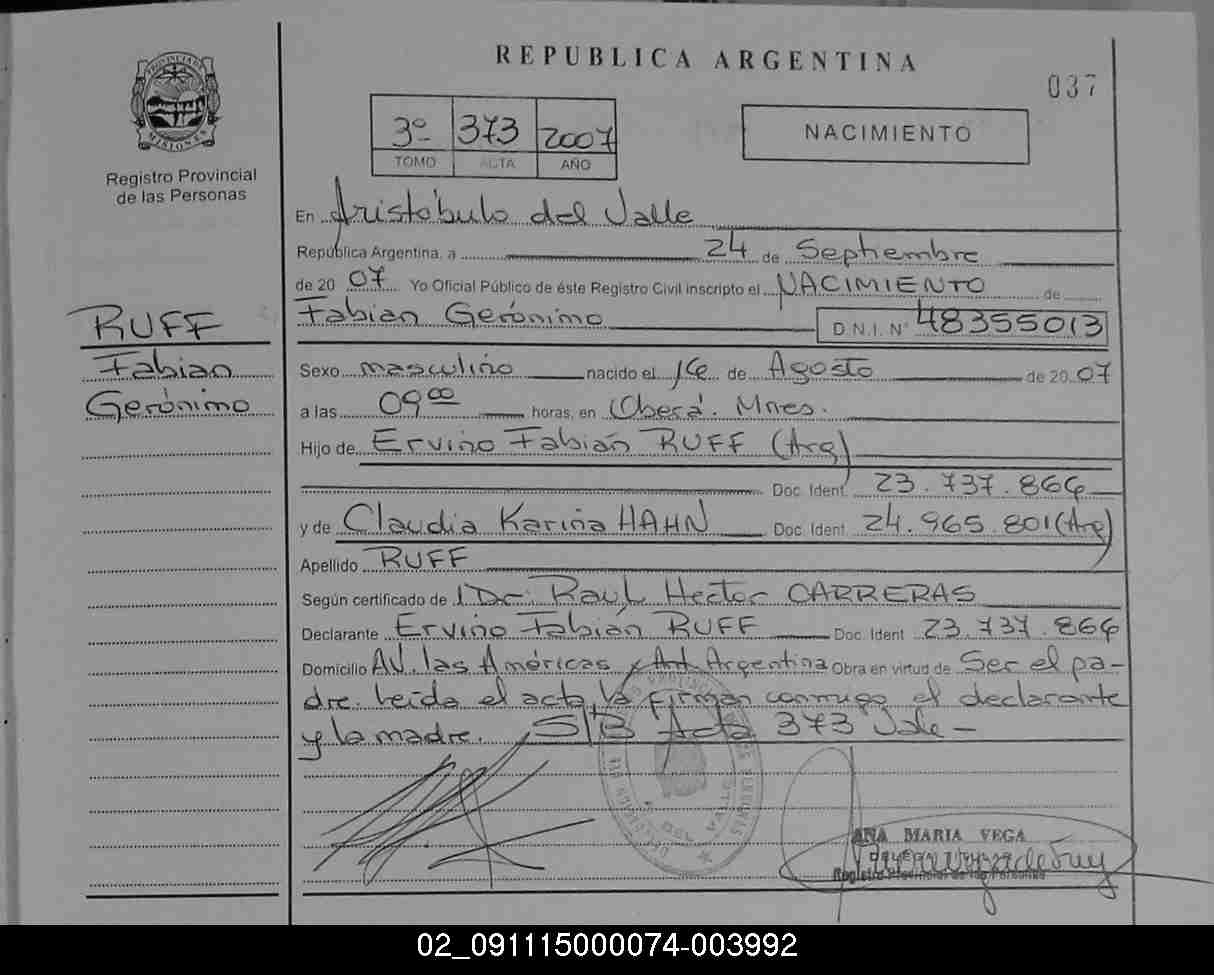 REPUBLICA ARGENTINA
037
PROVINCIA DE
MISIONES
Registro Provincial
de las Personas
3º 373 2007
TOMO ACTA AÑO
NACIMIENTO
En Aristóbulo del Valle
República Argentina, a 24 de Septiembre
de 20 07 Yo Oficial Público de éste Registro Civil inscripto el NACIMIENTO de
Fabian Gerónimo D.N.I. Nº 48355013
RUFF
Fabian
Gerónimo
Sexo masculino nacido el 16 de Agosto de 20 07
a las 09 00 horas, en Oberá. Mnes.
Hijo de Ervino Fabián RUFF (Arg)
Doc. Ident. 23.737.866
y de Claudia Karina HAHN Doc. Ident. 24.965.801 (Arg)
Apellido RUFF
Según certificado de Dr. Raúl Hector CARRERAS
Declarante Ervino Fabián RUFF Doc. Ident. 23.737.866
Domicilio AV. las Américas y Ant. Argentina Obra en virtud de Ser el pa-
dre. Leida el acta, la firman conmigo el declarante
y la madre. S/B Acta 373 Vale-
ANA MARIA VEGA
Registro Provincial de las Personas
02_091115000074-003992